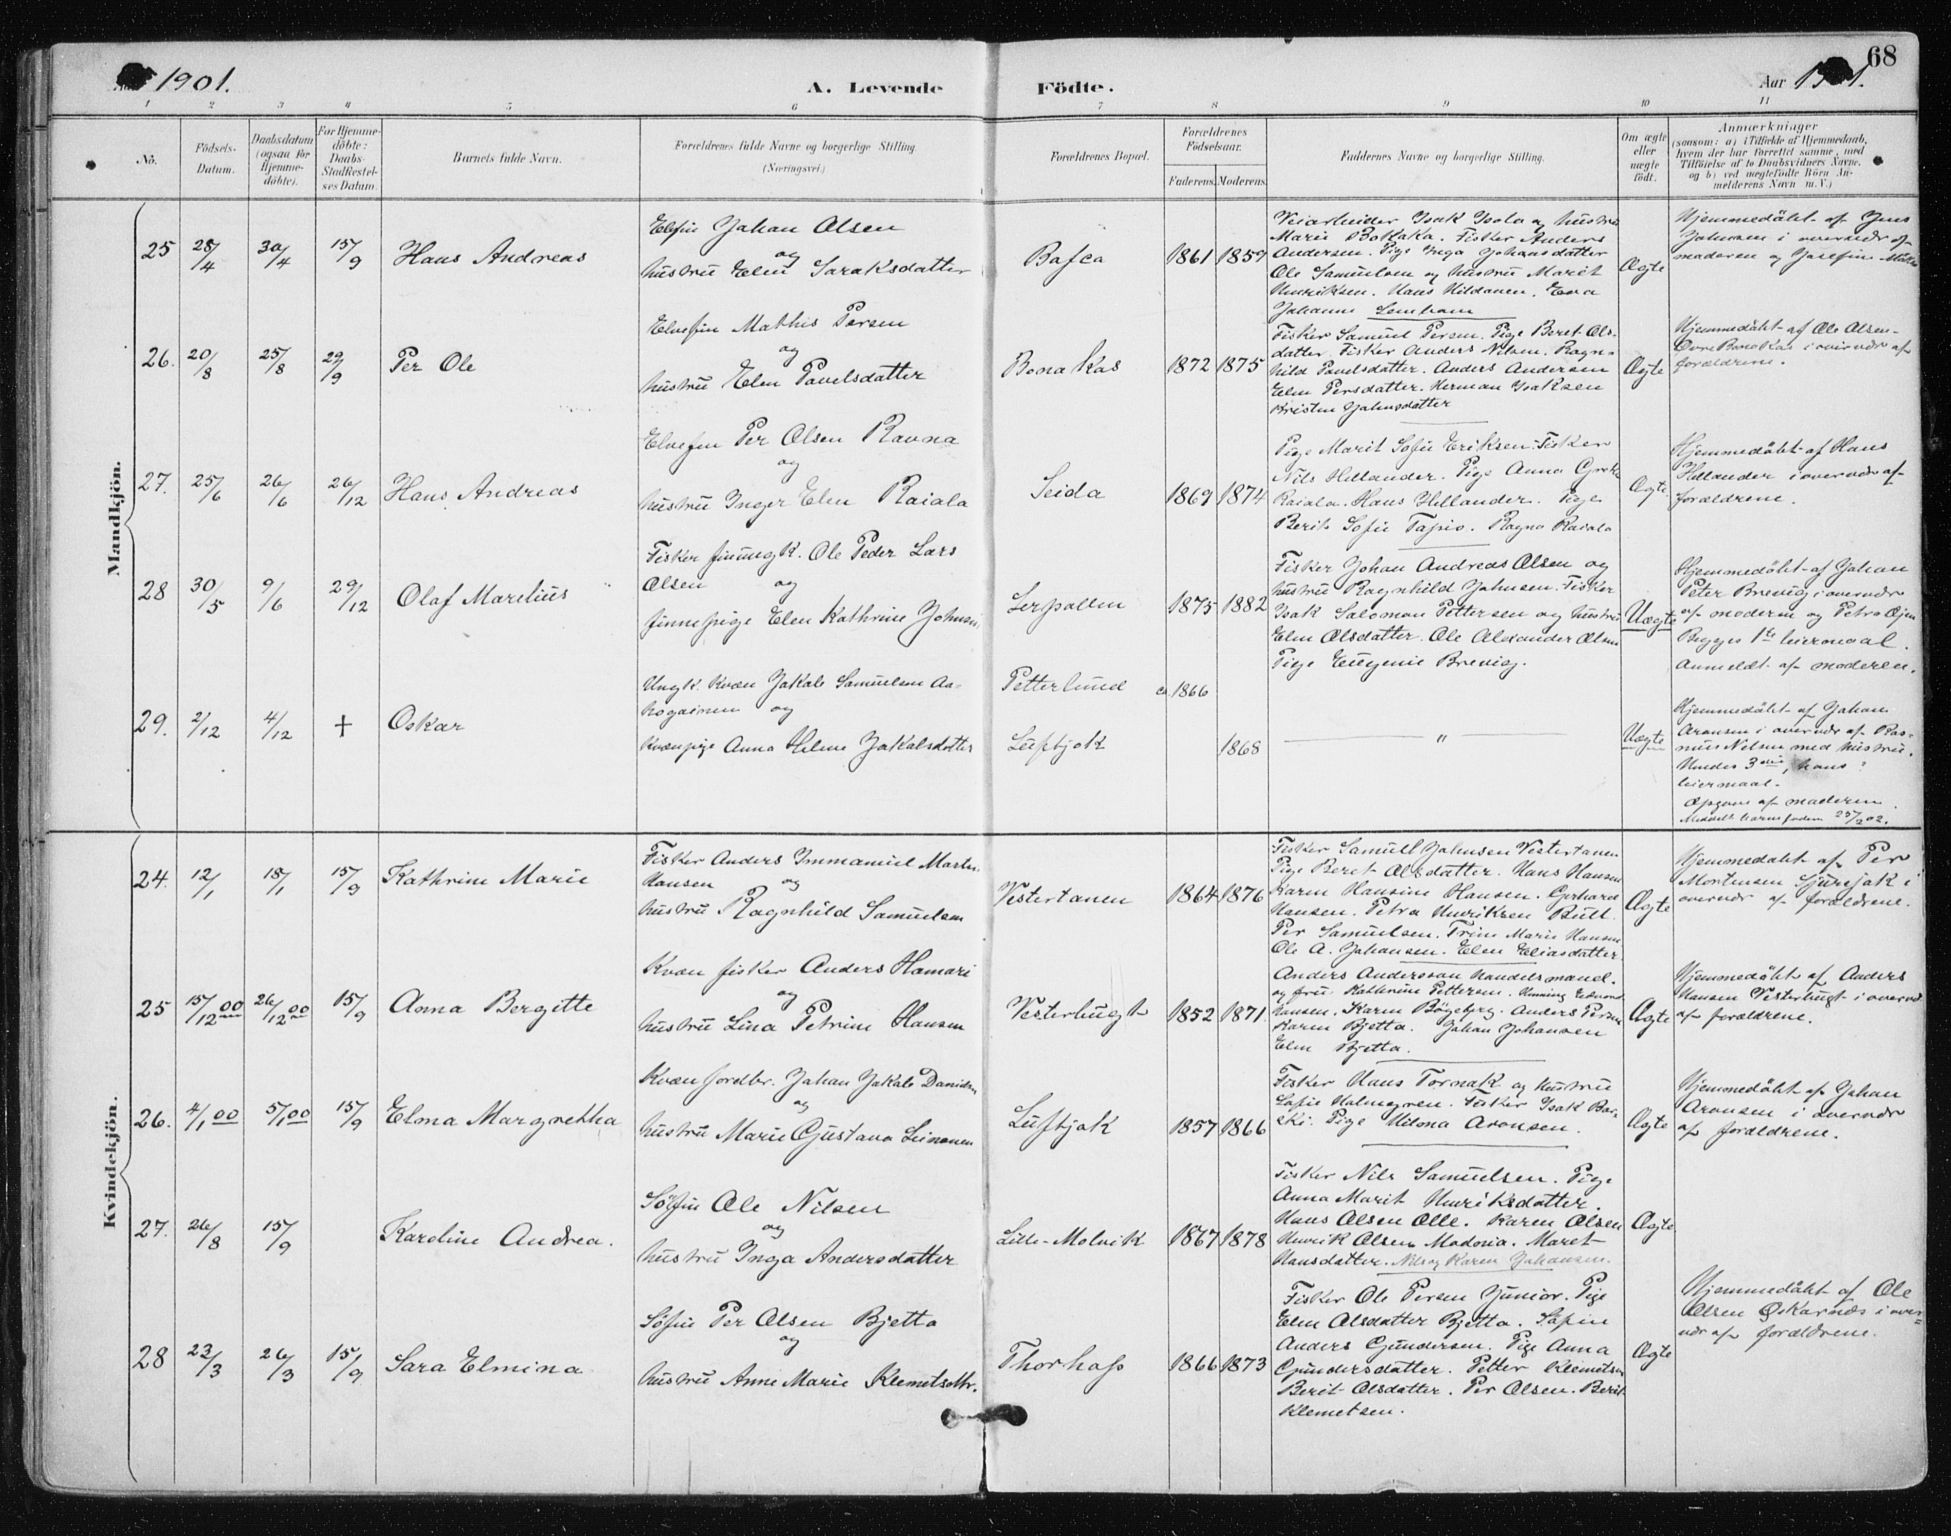 1901.
A. Levende
Födte.
Aar 1901.
68
1 2 3 4 5 6 7 8 9 10 11
No.
Födsels-
Datum.
Daabsdatum
(ogsaa for
Hjemme-
döbte).
For Hjemme-
döbte:
Daabs-
Stadfæstel-
ses Datum.
Barnets fulde Navn.
Forældrenes fulde Navne og borgerlige Stilling
(Næringsvei.)
Forældrenes Bopæl.
Forældrenes
Födselsaar.
Faderens.
Moderens.
Faddernes Navne og borgerlige Stilling.
Om ægte
eller
uægte
födt.
Anmærkninger
(saasom: a) i Tilfælde af Hjemmedaab,
hvem der har forrettet samme, med
Tilföielse af to Daabsvidners Navne.
og b) ved uægtefödte Börn An-
melderens Navn m. V.)
Mandkjön.
25 28/4 30/4 15/9 Hans Andreas
Elvfin Johan Olsen
og
hustru Elen Saraksdatter
1861 1859
Veiarbeider Isak Isola og hustru
Marie Fisker Anders
Andersen. Pige Inga Johansdatter
Ole Samuelsen og hustru Marit
Henriksen. Hans Eva
Johanne
Ægte
Hjemmedöbt af Jens
Johnsen i overvær af
moderen og Josefine
26. 20/8 25/8 29/9 Per Ole
Elvefin Mathis Persen
og
hustru Elen Pavelsdatter
Bonakas
1872 1875
Fisker Samuel Persen. Pige Beret Ols-
datter. Fisker Anders Nilsen. Ragn-
hild Pavelsdatter. Anders Andersen
Elen Persdatter. Herman Isaksen
Kristen Johnsdatter
Ægte
Hjemmedöbt af Ole Olsen
Övre Bonakas i overvær af
forældrene.
27. 25/6 26/6 26/12 Hans Andreas
Elvefin Per Olsen Ravna
og
hustru Inger Elen Raiala
Seida
1869 1874
Pige Marit Sofie Eriksen. Fisker
Nils Hellander. Pige Anna Greta
Raiala. Hans Hellander. Pige
Berit Sofie Tapio. Ragna Raiala
Ægte
Hjemmedöbt af Hans
Hellander i overvær af
forældrene.
28 30/5 9/6 29/12 Olaf Marelius
Fisker finneungk. Ole Peder Lars
Olsen og
finnepige Elen Kathrine Johnsen
Leirpollen
1875 1882
Fisker Johan Andreas Olsen og
hustru Ragnhild Johnsen. Fisker
Isak Salomon Pettersen og hustru
Elen Olsdatter. Ole Alexander Olsen
Pige Eugenie Brevig.
Uægte
Hjemmedöbt af Johan
Peter Brevig i overvær
af moderen og Petra
Begges 1ste leiermaal.
Anmeldt af moderen.
29. 2/12 4/12 † Oskar
Ungk. Kvæn Jakob Samuelsen
og
Kvænpige Anna Helene Jakobsdatter
Petterlund ca. 1866
Luftjok 1868
"
Uægte
Hjemmedöbt af Johan
Aronsen i overvær af Ras-
mus Nilsen med hustru.
Hendes 3die, hans ?
leiermaal.
Opgave af moderen.
Kvindekjön.
24. 12/1 18/1 15/9 Kathrine Marie
Fisker Anders Immanuel Martin
Hansen og
hustru Ragnhild Samuelsen
Vestertanen
1864 1876
Fisker Samuel Johnsen Vestertanen
Pige Beret Olsdatter. Hans Hansen
Karen Hansine Hansen. Gerhard
Hansen. Petra Henriksen Bull.
Per Samuelsen. Trine Marie Hansen
Ole A. Johansen. Elen Eliasdatter.
Ægte
Hjemmedöbt af Per
Mortensen i
overvær af forældrene.
25 15/12 00 26/12 00 15/9 Anna Bergitte
Kvæn fisker Anders Hamari
og
hustru Lina Petrine Hansen
Vesterbugt
1852 1871
Anders Anderssan Handelsmand
og fru Kathrine Pettersen. Henning Edmond
Hansen. Karen Anders Persen
Karen Bjetta. Johan Johansen
Elen Bjetta.
Ægte
Hjemmedöbt af Anders
Hansen Vesterbugt i overvær
af forældrene.
26. 4/1 00 5/1 00 15/9 Elma Margretha
Kvæn jordbr. Johan Jakob Danielsen
og
hustru Marie Gustava Leinonen
Luftjok
1857 1866
Fisker Hans Tornak og hustru
Sofie Holmgren. Fisker Isak Bar-
ski. Pige Hilma Aronsen.
Ægte
Hjemmedöbt af Johan
Aronsen i overvær
af forældrene.
27. 26/8 15/9 Karoline Andrea.
Söfin Ole Nilsen
og
hustru Inga Andersdatter
Lille-Molvik
1867 1878
Fisker Nils Samuelsen. Pige
Anna Marit Henriksdatter.
Hans Olsen Olle. Karen Olsen
Henrik Olsen Madvia. Maret
Hansdatter. Nils og Karen Johansen.
Ægte
28 23/3 26/3 15/9 Sara Elmina
Söfin Per Olsen Bjetta
og
hustru Anne Marie Klemetsdtr.
Thorhop
1866 1873
Fisker Ole Persen Junior. Pige
Elen Olsdatter Bjetta. Söfin
Anders Gundersen. Pige Anna
Gundersdatter. Petter Klemetsen
Berit Olsdatter. Per Olsen. Berit
Klemetsen.
Ægte
Hjemmedöbt af Ole
Olsen Oskarnes i over-
vær af forældrene.